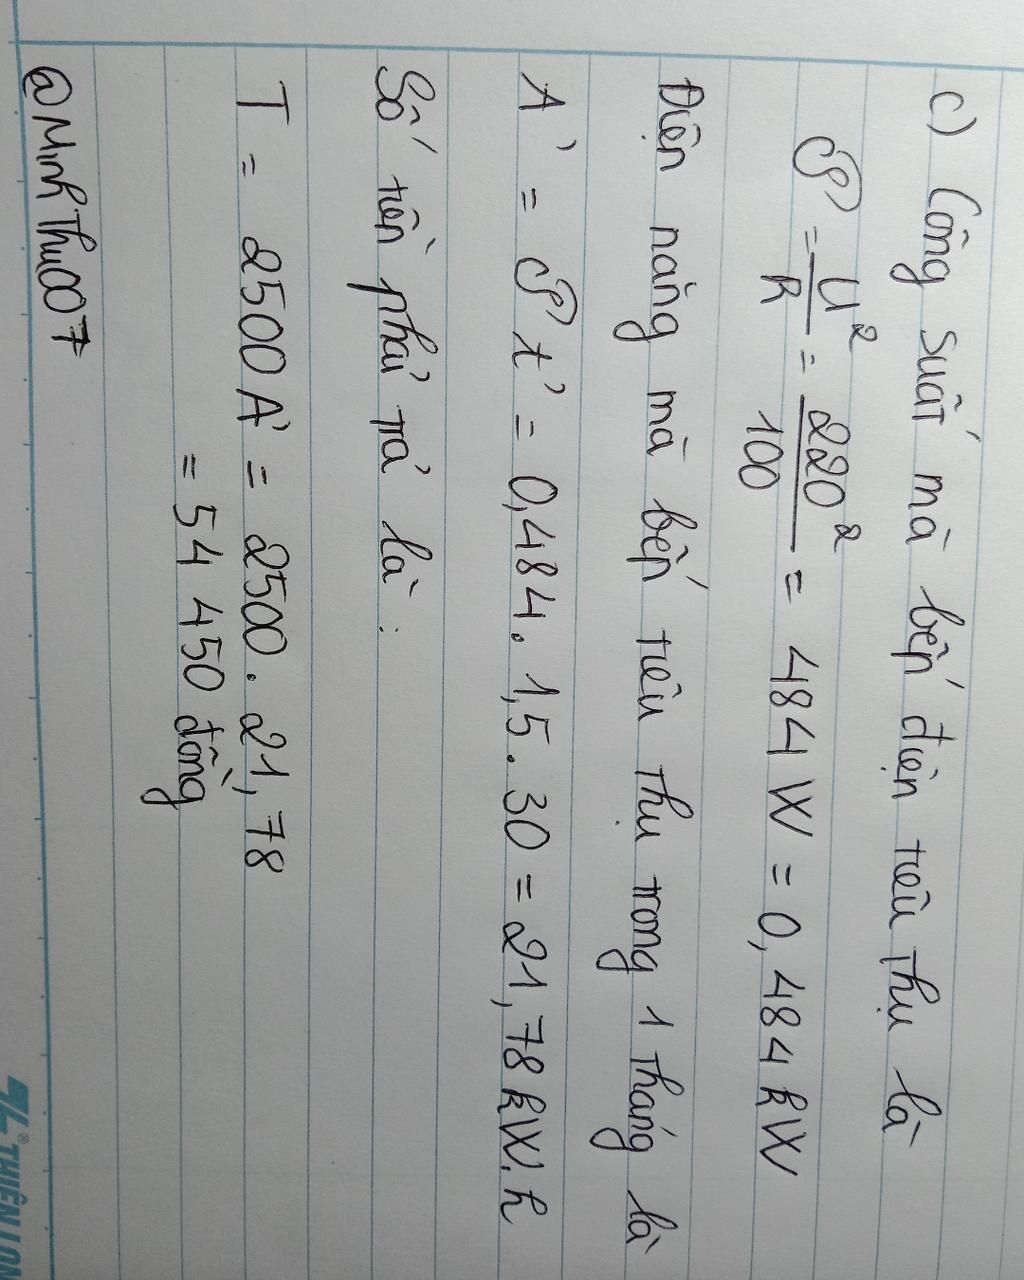 c) Công suất mà bếp điện tiêu thụ là
𝒫 = U²/R = 220²/100 = 484 W = 0,484 kW
Điện năng mà bếp tiêu thụ trong 1 tháng là
A' = 𝒫 t' = 0,484. 1,5. 30 = 21,78 kW.h
Số tiền phải trả là :
T = 2500 A' = 2500. 21,78
= 54 450 đồng
@MinhThu007
THIEN LON